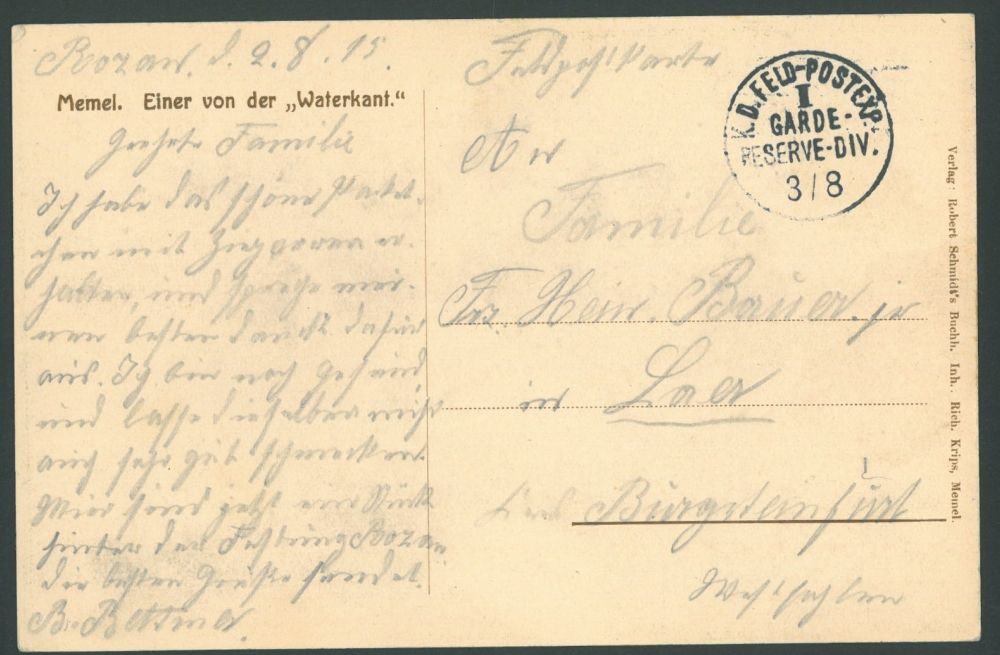 Rozan, d. 2.8.15
Memel. Einer von der „Waterkant."
Geehrte Familie
Ich habe das schöne Packet,
chen mit Zigarren er-
halten, und spreche mei-
nen besten Danck dafür
aus. Ich bin noch gesund,
und lasse dieselben mich
auch sehr gut schmecken.
Wier sind jetzt ein Stück
hinter der Festung Rozan
die besten Grüße sendet.
B. Bettmer.
Feldpostkarte
K. D. FELD-POSTEXP.
I
GARDE-
RESERVE-DIV.
3/8
An
Familie
Frz. Heinr. Bauer. jr
in Laer
Burgsteinfurt
Westfahlen
Verlag: Robert Schmidt's Buchh. Inh. Rich. Krips, Memel.